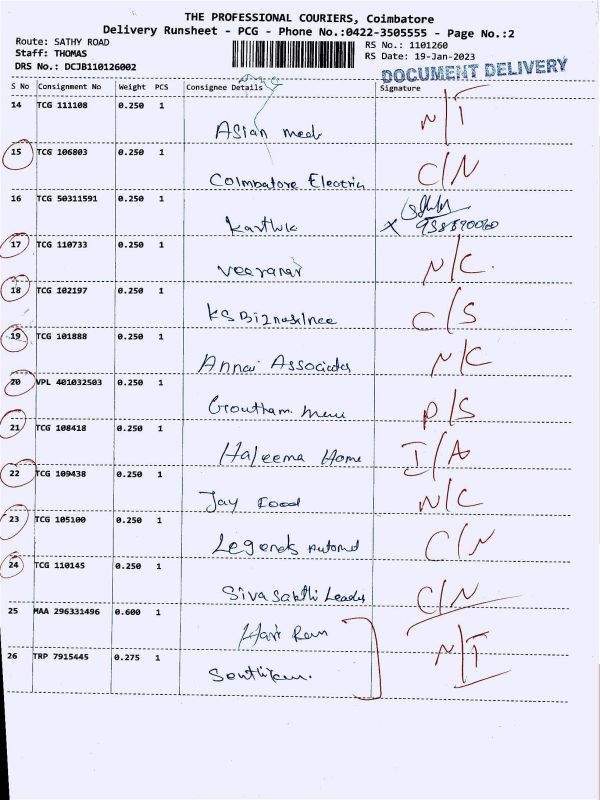 THE PROFESSIONAL COURIERS, Coimbatore
Delivery Runsheet - PCG - Phone No.:0422-3505555 - Page No.:2
Route: SATHY ROAD
Staff: THOMAS
DRS No.: DCJB110126002
RS No.: 1101260
RS Date: 19-Jan-2023
DOCUMENT DELIVERY
S No Consignment No Weight PCS Consignee Details Signature
14 TCG 111108 0.250 1
Asian med N/T
15 TCG 106803 0.250 1
Coimbatore Electric C/N
16 TCG 50311591 0.250 1
Karthik X
17 TCG 110733 0.250 1
N/C
18 TCG 102197 0.250 1
KS C/S
19 TCG 101888 0.250 1
Annai Associates N/C
20 VPL 401032503 0.250 1
Goutham P/S
21 TCG 108418 0.250 1
Haleema Home I/A
22 TCG 109438 0.250 1
Jay Food N/C
23 TCG 105100 0.250 1
Legends C/N
24 TCG 110145 0.250 1
Sivasakthi Leader C/N
25 MAA 296331496 0.600 1
Hari Ram N/T
26 TRP 7915445 0.275 1